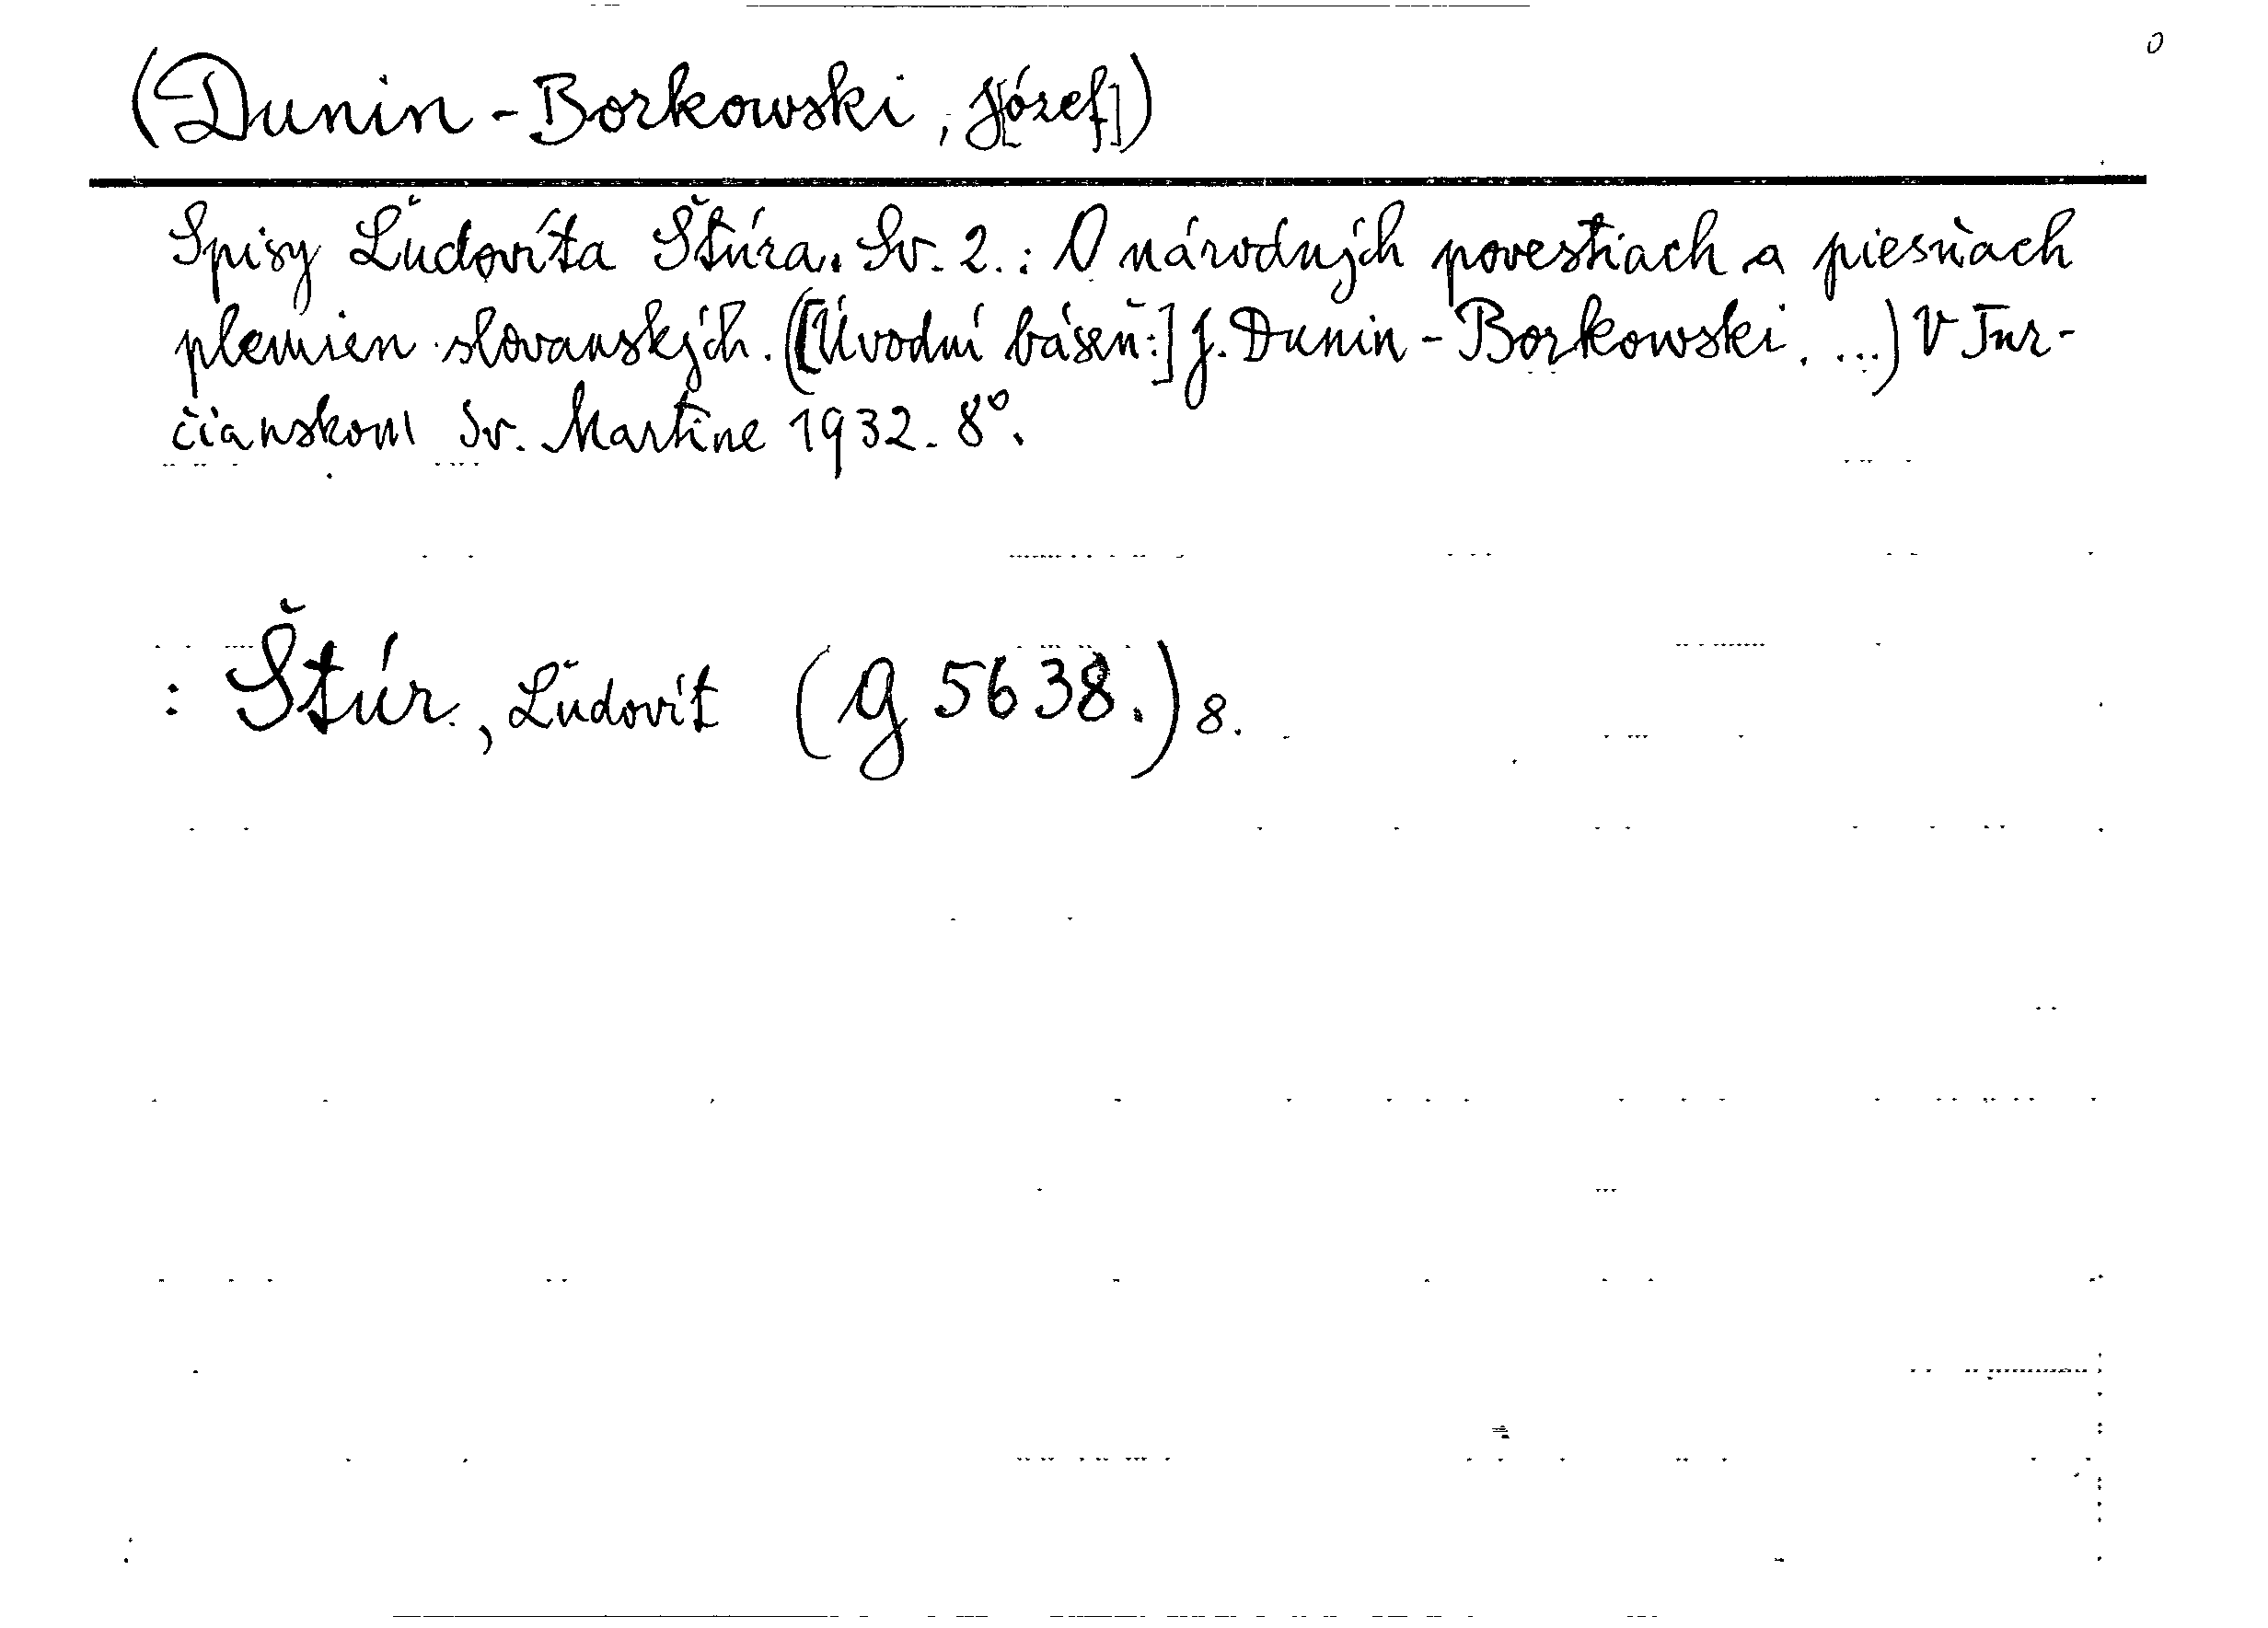 0
(Dunin-Borkowski, J[ózef])
Spisy Ľudovíta Štúra. Sv. 2.: O národných povestiach a piesňach
plemien slovanských. ([Úvodní báseň:] J. Dunin-Borkowski. ...) V Tur-
čianskom Sv. Martine 1932. 8°.
: Štúr, Ľudovít (g 5638.) 8.